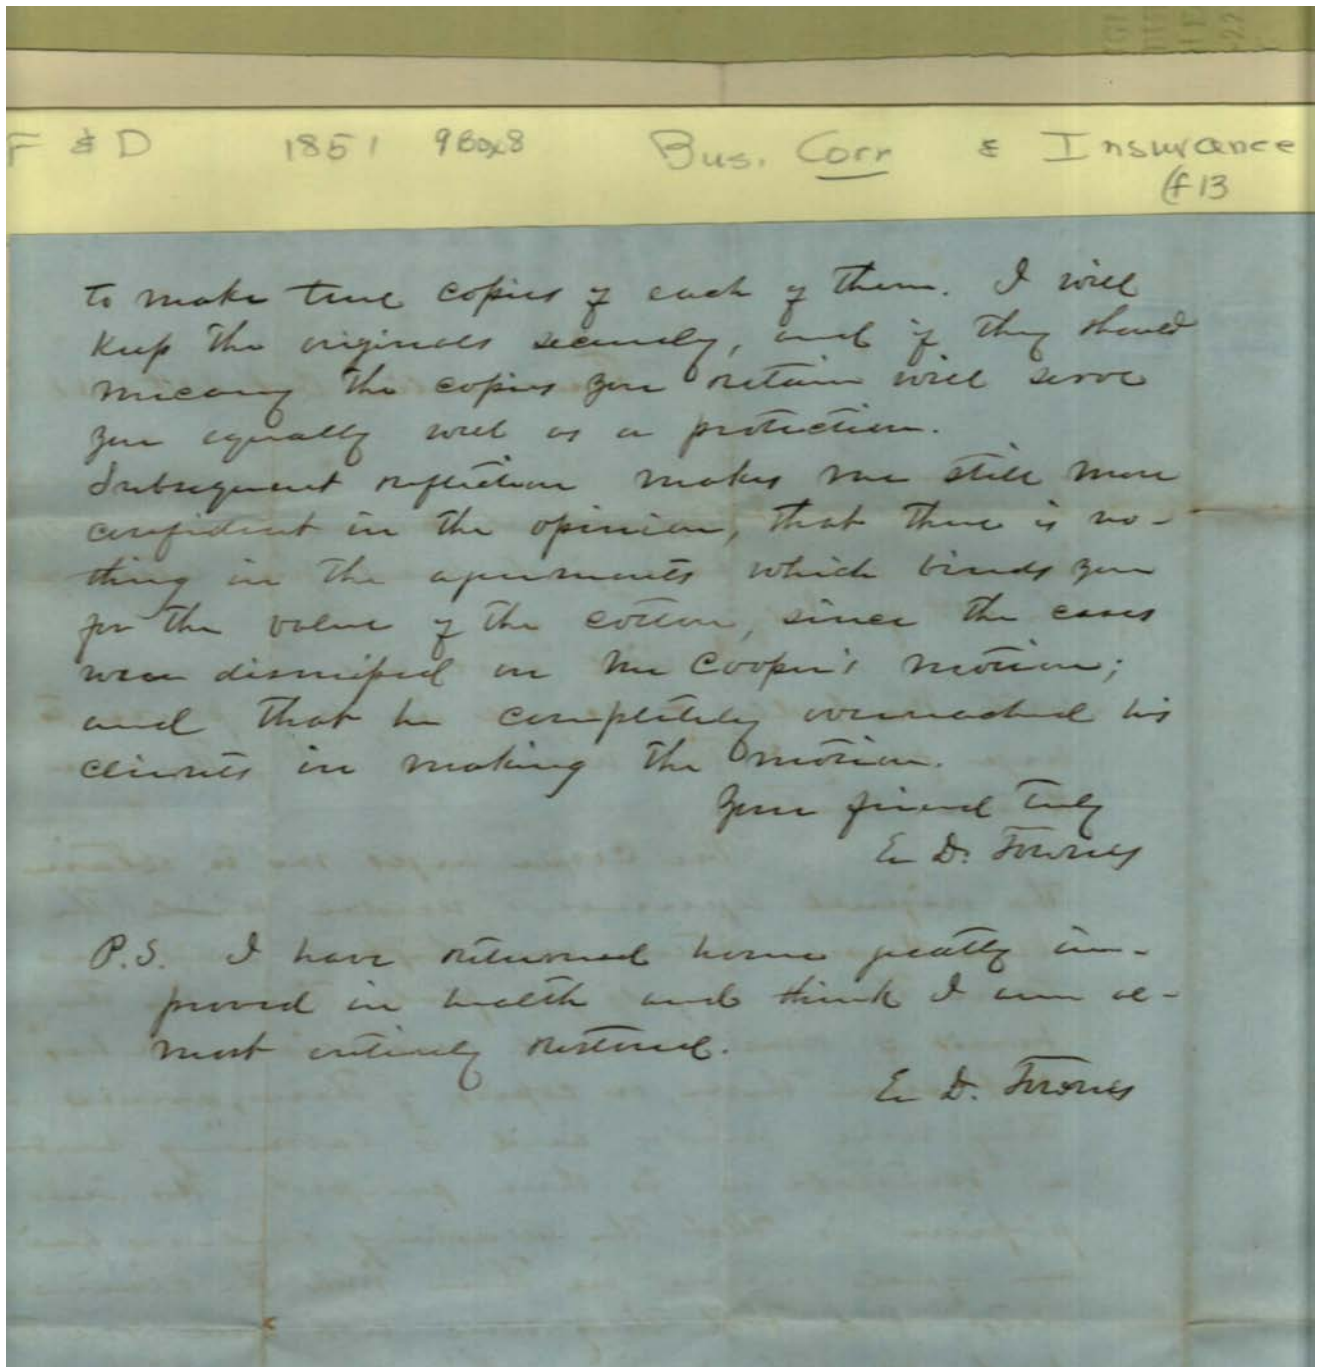 F & D 1851 9Box8 Bus. Corr & Insurance
(f 13
to make true copies of each of them. I will
keep the originals securely, and if they should
miscarry the copies you retain will serve
you equally well as a protection.
Subsequent reflection makes me still more
confident in the opinion, that there is no-
thing in the agreements which binds you
for the value of the cotton, since the cases
were dismissed on Mr Cooper's motion;
and that he completely overreached his
clients in making the motion.
Your friend Truly
E. D. Townes
P.S. I have returned home greatly im-
proved in health and think I am al-
most entirely restored.
E. D. Townes